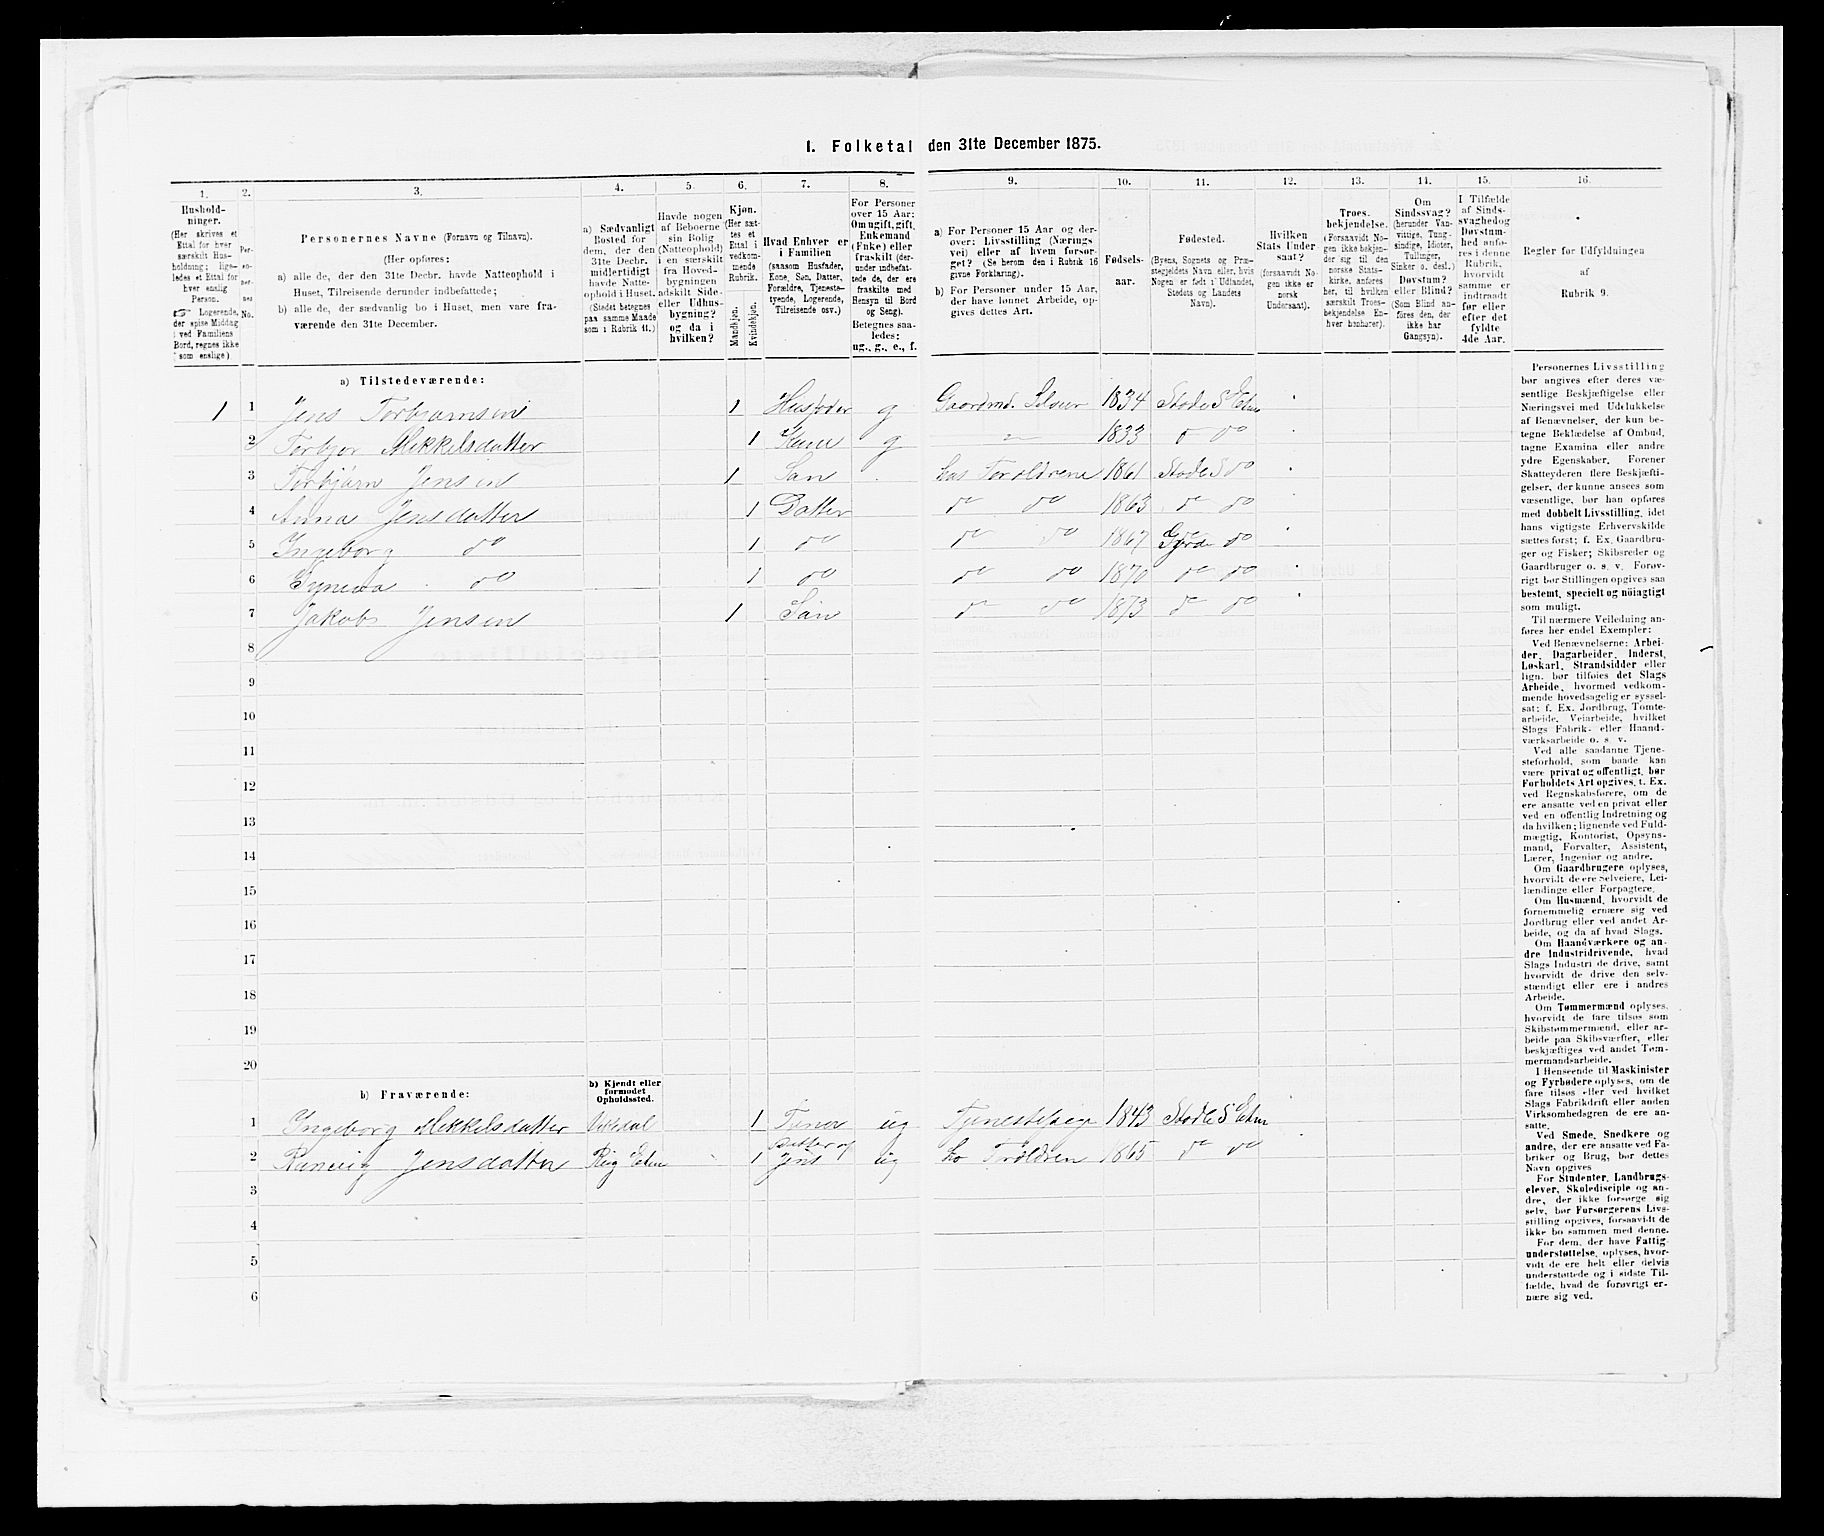 I. Folketal den 31te December 1875.
1.
Hushold-
ninger.
(Her skrives et
Ettal for hver
særskilt Hus-
holdning; lige-
ledes et Ettal for
hver enslig
Person.
☞ Logerende,
der spise Middag
ved Familiens
Bord, regnes ikke
som enslige)
2.
Per-
so-
ner-
nes
No.
3.
Personernes Navne (Fornavn og Tilnavn).
(Her opføres:
a) alle de, der den 31te Decbr. havde Natteophold i
Huset, Tilreisende derunder indbefattede;
b) alle de, der sædvanlig bo i Huset, men vare fra-
værende den 31te December.
4.
a) Sædvanligt
Bosted for
dem, der den
31te Decbr.
midlertidigt
havde Natte-
ophold i Huset.
(Stedet betegnes
paa samme Maade
som i Rubrik 11.)
5.
Havde nogen
af Beboerne
sin Bolig
(Natteophold)
i en særskilt
fra Hoved-
bygningen
adskilt Side-
eller Udhus-
bygning?
og da i
hvilken?
6.
Kjøn.
(Her sæt-
tes et
Ettal i
vedkom-
mende
Rubrik.
Mandkjøn.
Kvindekjøn.
7.
Hvad Enhver er
i Familien
(saasom Husfader,
Kone, Søn, Datter,
Forældre, Tjeneste-
tyende, Logerende,
Tilreisende osv.)
8.
For Personer
over 15 Aar:
Om ugift, gift,
Enkemand
(Enke) eller
fraskilt (der-
under indbefat-
tede de, der ere
fraskilte med
Hensyn til Bord
og Seng).
Betegnes saa-
ledes:
ug., g., e., f.
9.
a) For Personer 15 Aar og der-
over: Livsstilling (Nærings-
vei) eller af hvem forsør-
get? (Se herom den i Rubrik 16
givne Forklaring).
b) For Personer under 15 Aar,
der have lønnet Arbeide, op-
gives dettes Art.
10.
Fødsels-
aar.
11.
Fødested.
(Byens, Sognets og Præ-
stegjeldets Navn eller, hvis
Nogen er født i Udlandet,
Stedets og Landets
Navn).
12.
Hvilken
Stats Under-
saat?
(forsaavidt No-
gen ikke er
norsk
Undersaat).
13.
Troes-
bekjendelse.
(Forsaavidt No-
gen ikke bekjen-
der sig til den
norske Stats-
kirke, anføres
her, til hvilken
særskilt Troes-
bekjendelse En-
hver henhører).
14.
Om
Sindssvag?
(herunder Van-
vittige, Tung-
sindige, Idioter,
Tullinger,
Sinker o. desl.)
Døvstum?
eller Blind?
(Som Blind an-
føres den, der
ikke har
Gangsyn).
15.
I Tilfælde
af Sinds-
svaghed og
Døvstum-
hed anfø-
res i denne
Rubrik,
hvorvidt
samme er
indtraadt
før eller
efter det
fyldte
4de Aar.
16.
Regler for Udfyldningen
af
Rubrik 9.
a) Tilstedeværende:
1 1 Jens Torbjørnsen 1 Husfader g Gaardmd. Selveier 1834 Skodje S Edøe
2 Torbjør Mikkelsdatter 1 Kone g 1833 do do
3 Torbjørn Jensen 1 Søn hos Foroldrene 1861 Skodje S do
4 Anna Jensdatter 1 Datter do do 1863 do do
5 Ingeborg do 1 do do do 1867 do
6 do 1 do do do 1870 do do
7 Jakob Jensen 1 Søn do do 1873 do do
8
9
10
11
12
13
14
15
16
17
18
19
20
b) Fraværende:
b) Kjendt eller
formodet
Opholdssted.
1 Ingeborg Mikkelsdatter Vikedal 1 ug 1843
2 Jensdatter 1 Datter af Jens ug 1865 do do
3
4
5
6
Personernes Livsstilling
bør angives efter deres væ-
sentlige Beskjæftigelse eller
Næringsvei med Udelukkelse
af Benævnelser, der kun be-
tegne Beklædelse af Ombud,
tagne Examina eller andre
ydre Egenskaber. Forener
Skatteyderen flere Beskjæfti-
gelser, der kunne ansees som
væsentlige, bør han opføres
med dobbelt Livsstilling, idet
hans vigtigste Erhvervskilde
sættes først; f. Ex. Gaardbru-
ger og Fisker; Skibsreder og
Gaardbruger o. s. v. Forøv-
rigt bør Stillingen opgives saa
bestemt, specielt og nöiagtigt
som muligt.
Til nærmere Veiledning an-
føres her endel Exempler:
Ved Benævnelserne: Arbei-
der, Dagarbeider, Inderst,
Løskarl, Strandsidder eller
lign. bør tilføies det Slags
Arbeide, hvormed vedkom-
mende hovedsagelig er syssel-
sat; f. Ex. Jordbrug, Tomte-
arbeide, Veiarbeide, hvilket
Slags Fabrik- eller Haand-
værksarbeide o. s. v.
Ved alle saadanne Tjene-
steforhold, som baade kan
være privat og offentligt, bør
Forholdets Art opgives, t. Ex.
ved Regnskabsførere, om de
ere ansatte ved en privat eller
ved en offentlig Indretning og
da hvilken; lignende ved Fuld-
mægtig, Kontorist, Opsyns-
mand, Forvalter, Assistent,
Lærer, Ingeniør og andre.
Om Gaardbrugere oplyses,
hvorvidt de ere Selveiere, Lei-
lændinge eller Forpagtere.
Om Husmænd, hvorvidt de
fornemmelig ernære sig ved
Jordbrug eller ved andet Ar-
beide, og da af hvad Slags.
Om Haandværkere og an-
dre Industridrivende, hvad
Slags Industri de drive, samt
hvorvidt de drive den selv-
stændigt eller ere i andres
Arbeide.
Om Tømmermænd oplyses,
hvorvidt de fare tilsøs som
Skibstømmermænd, eller ar-
beide paa Skibsværfter, eller
beskjæftiges ved andet Tøm-
mermandsarbeide.
I Henseende til Maskinister
og Fyrbødere oplyses, om de
fare tilsøs eller ved hvilket
Slags Fabrikdrift eller anden
Virksomhedsgren de ere an-
satte.
Ved Smede, Snedkere og
andre, der ere ansatte ved Fa-
briker og Brug, bør dettes
Navn opgives
For Studenter, Landbrugs-
elever, Skoledisciple og an-
dre, der ikke forsørge sig
selv, bør Forsørgerens Livs-
stilling opgives, forsaavidt de
ikke bo sammen med denne.
For dem, der have Fattig-
understøttelse, oplyses, hvor-
vidt de ere helt eller delvis
understøttede og i sidste Til-
fælde, hvad de forøvrigt er-
nære sig ved.